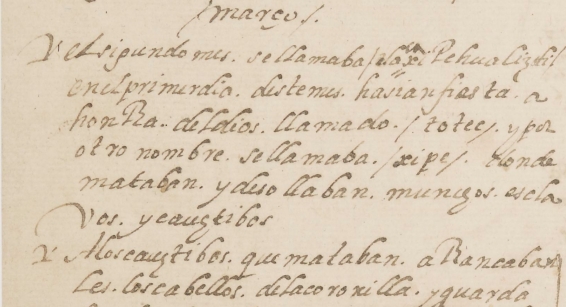 /março/.
Y el sigundo mes. se llamaba /tlacaxiPehualiztli
en el primer dia. deste mes. hasian fiesta. a
honRa. del dios. llamado. / totec/. y por
otro nombre. se llamaba. /xipe/. donde
mataban. y desollaban. munchos. escla
vos. y caugtibos
Y A los caugtibos. que mataban. aRancaban
les. los cabellos. de la coronilla. y guarda